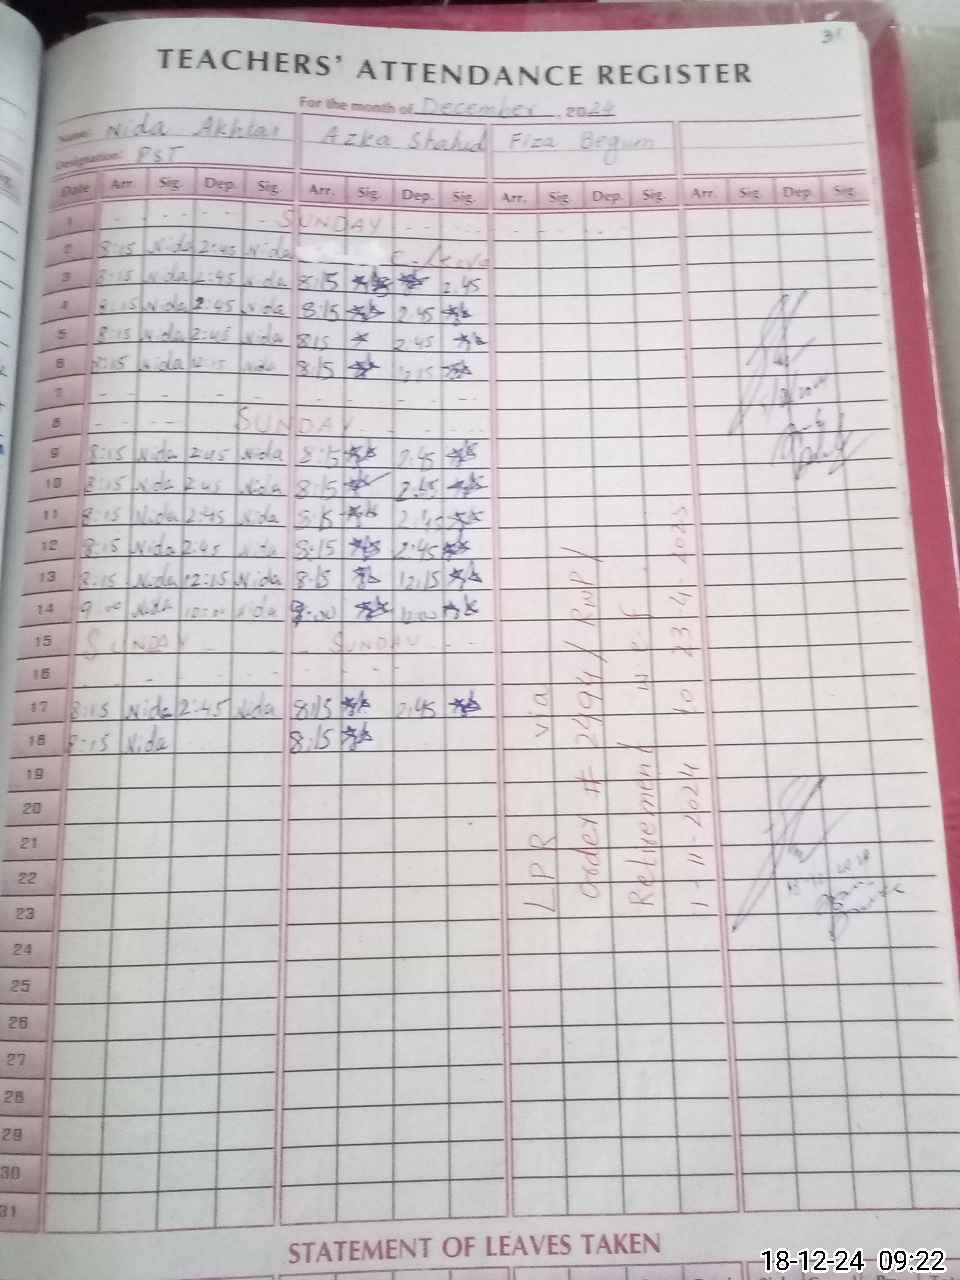 3
TEACHERS' ATTENDANCE REGISTER
For the month of December, 2024
Name: Nida Akhtar Azka Shahid Fiza Begum
Designation: PST
Date Arr. Sig. Dep. Sig. Arr. Sig. Dep. Sig. Arr. Sig. Dep. Sig. Arr. Sig. Dep. Sig.
1 SUNDAY
2 8:15 Nida 2:45 Nida
3 8:15 Nida 2:45 Nida 8:15 2.45
4 8:15 Nida 2:45 Nida 8:15 2.45
5 8:15 Nida 2:45 Nida 8:15 2.45
6 8:15 Nida 12:15 Nida 8:15 12.15
7
8 SUNDAY
9 8:15 Nida 2:45 Nida 8:15 2.45
10 8:15 Nida 2:45 Nida 8:15 2.45
11 8:15 Nida 2:45 Nida 8:15 2.45
12 8:15 Nida 2:45 Nida 8:15 2:45
13 8:15 Nida 12:15 Nida 8:15 12:15
14 9:00 Nida 10:00 Nida 9:00 10:00
15 SUNDAY SUNDAY
16
17 8:15 Nida 2:45 Nida 8:15 2.45
18 8:15 Nida 8:15
19
20
21
22
23
24
25
26
27
28
29
30
31
LPR via
order # 2494/RWP/
Retirement w.e.f
1-11-2024 to 23-4-2025
STATEMENT OF LEAVES TAKEN
18-12-24 09:22